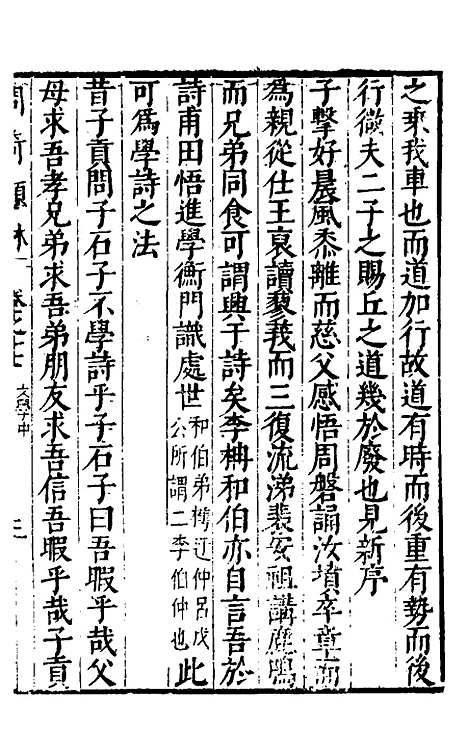 之乘我車也而道加行故道有時而後重有勢而後
行微夫二子之賜丘之道幾於廢也見新序
子擊好晨風黍離而慈父感悟周磐誦汝墳卒章而
爲親從仕王裒讀蓼莪而三復流涕裴安祖講鹿鳴
而兄弟同食可謂興于詩矣李柟和伯亦自言吾於
詩甫田悟進學衡門識處世和伯弟樗迂仲呂成公所謂二李伯仲也此
可爲學詩之法
昔子貢問子石子不學詩乎子石子曰吾暇乎哉父
母求吾孝兄弟求吾弟朋友求吾信吾暇乎哉子貢
卷之七 文學中 三